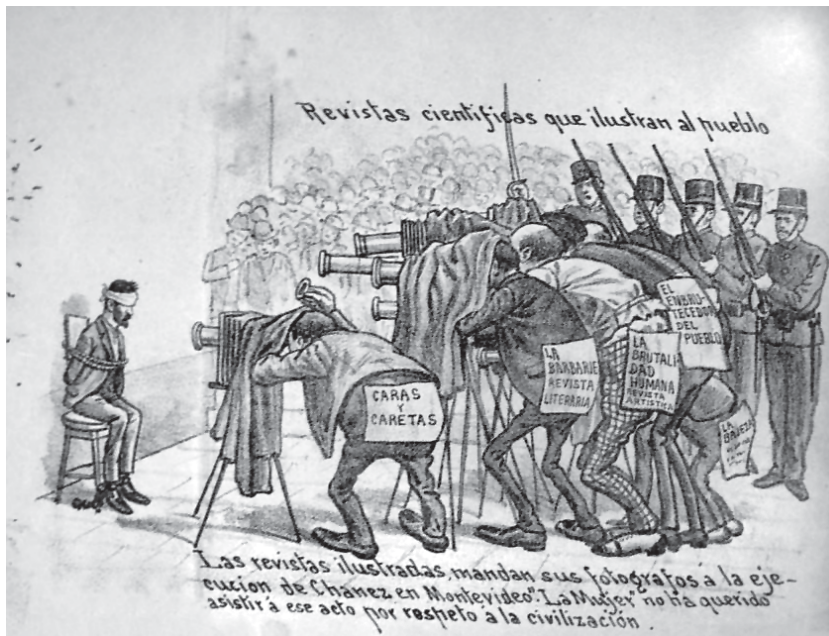 Revistas cientificas que ilustran al pueblo
CARAS
Y
CARETAS
LA
BARBARIE
REVISTA
LITERARIA
EL
ENBRU-
TECEDOR
DEL
PUEBLO
LA
BRUTALI
DAD
HUMANA
REVISTA
ARTISTICA
LA
BAJEZA
Las revistas ilustradas mandan sus fotografos á la eje-
cucion de Chanez en Montevideo". "La Mujer" no ha querido
asistir á ese acto por respeto á la civilización.